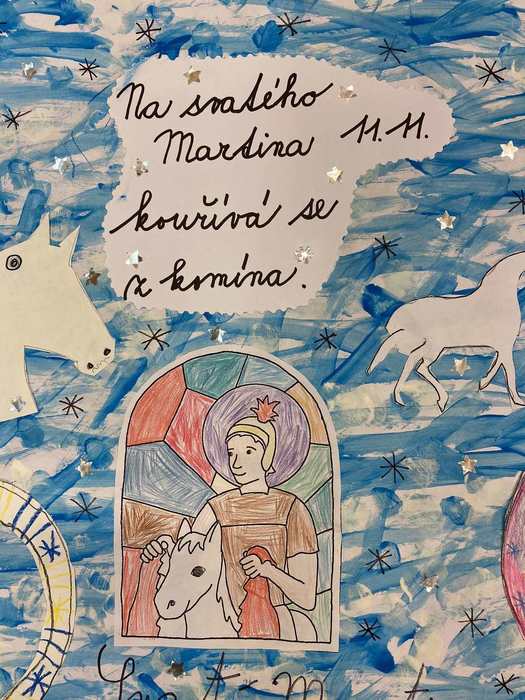 Na svatého
Martina 11.11.
kouřívá se
z komína.